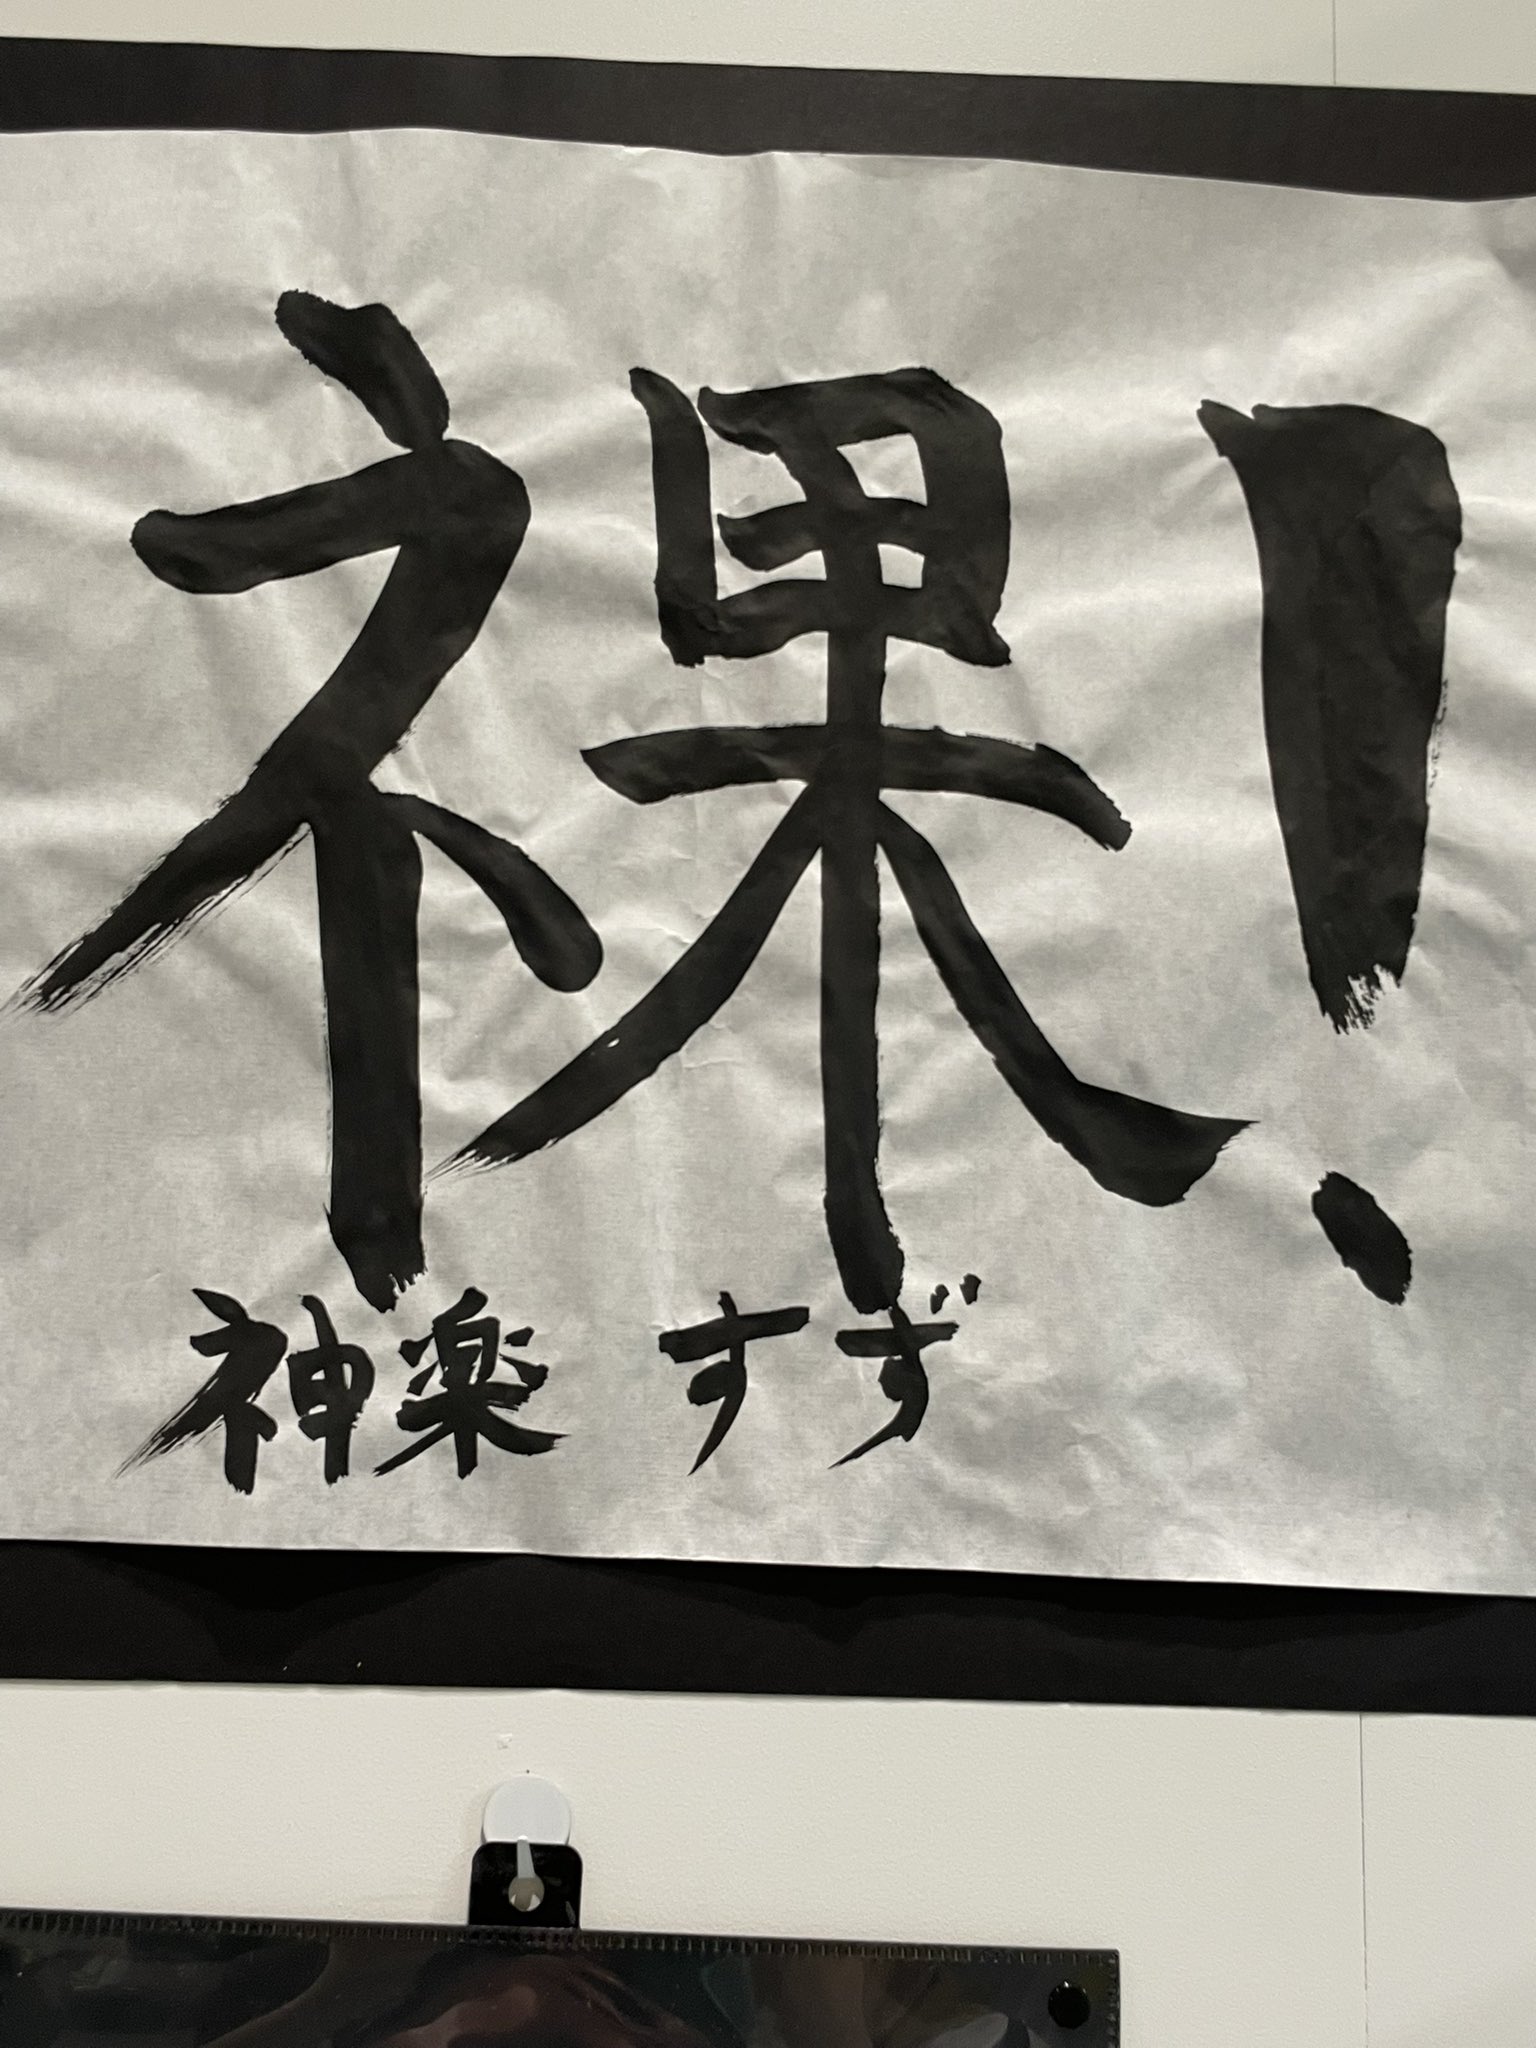 祼!
神楽 すず